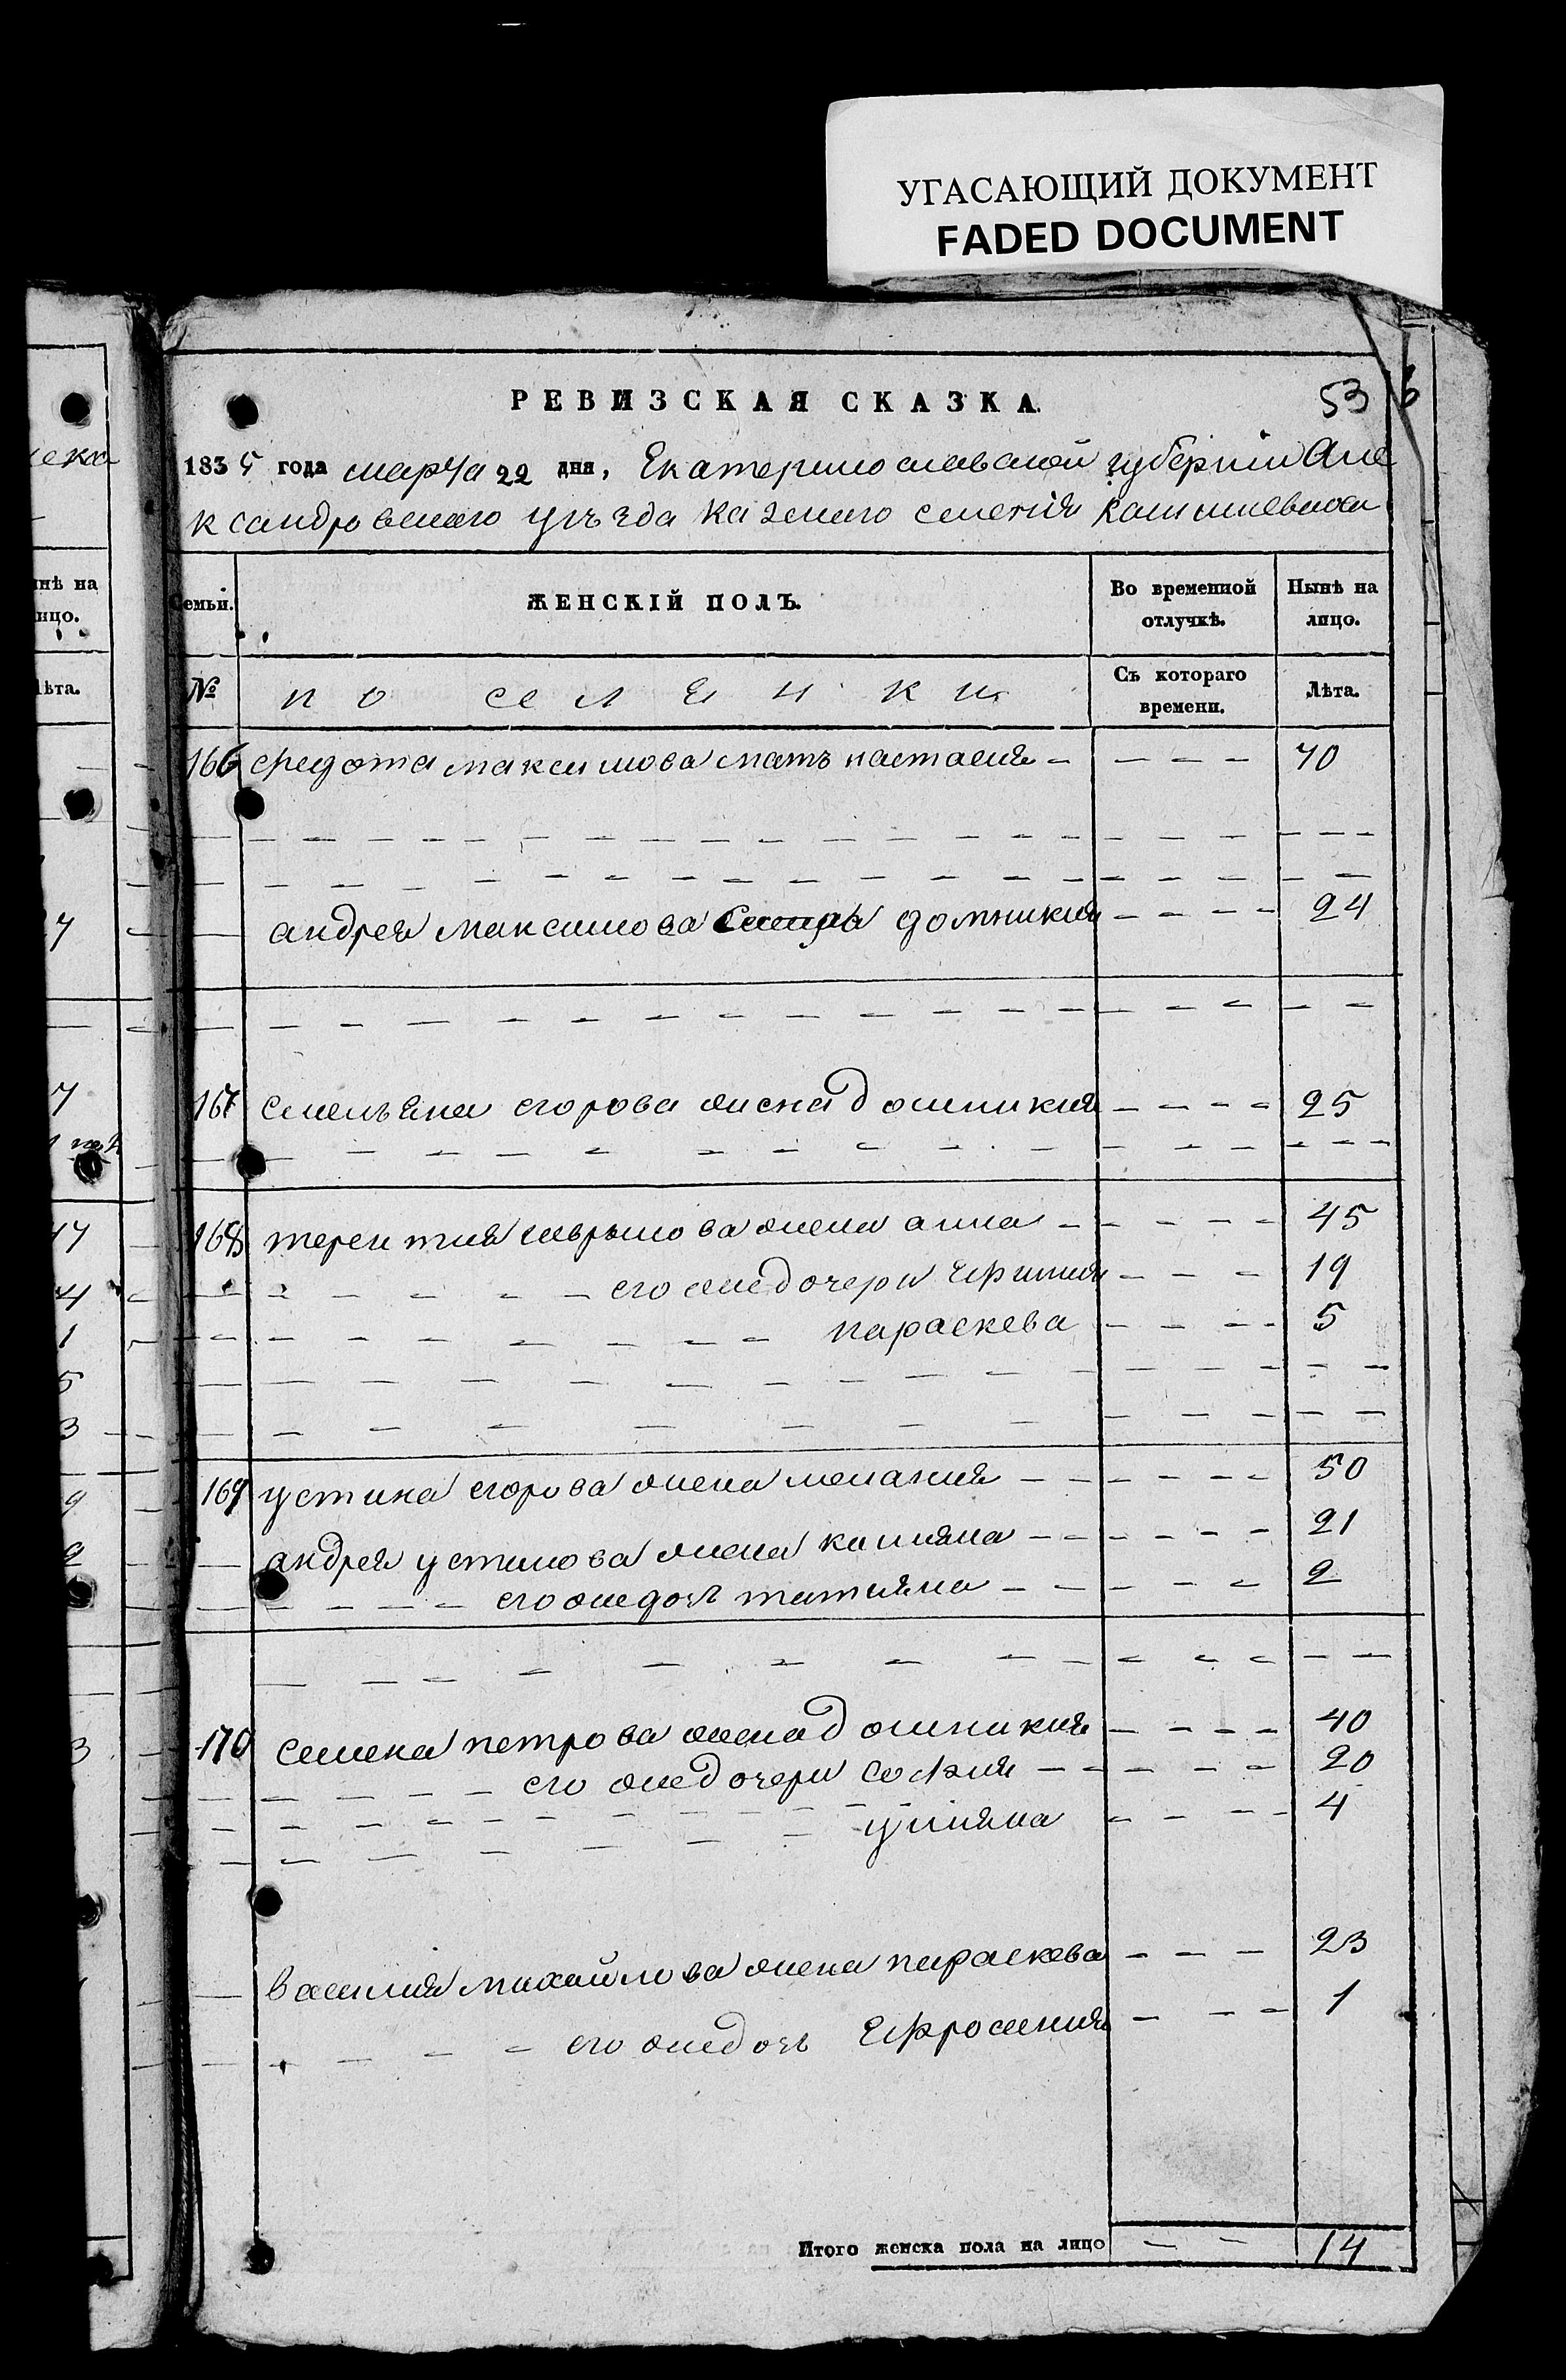 УГАСАЮЩИЙ ДОКУМЕНТ
FADED DOCUMENT
РЕВИЗСКАЯ СКАЗКА.
53
1835 года марта 22 дня, Екатеринославской губернии Але
ксандровскаго уъзда казенаго селения
Семьи. ЖЕНСКІЙ ПОЛЪ. Во временной отлучкѣ. Нынѣ на лицо.
№ поселенки Съ котораго времени. Лѣта.
166 федота максимова мать настасия 70
андрея максимова домникия 24
167 емельяна егорова жена домникия 25
168 терентия жена анна 45
его же дочери Ефимия 19
параскева 5
169 устина егорова жена мелания 50
андрея устинова жена 21
его же дочь татияна 2
170 семена петрова жена домникия 40
его же дочери софия 20
улияна 4
василия михайлова жена параскева 23
его же дочь Ефросиния 1
Итого женска пола на лицо 14